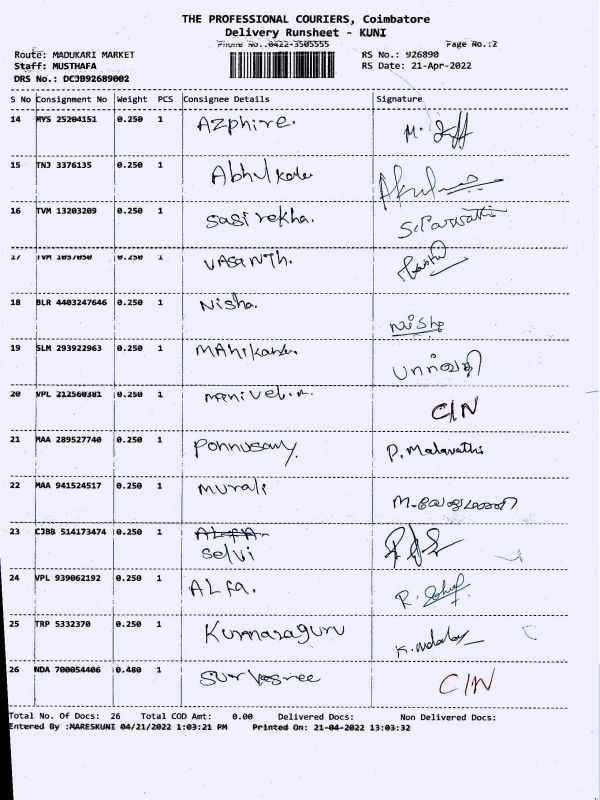 THE PROFESSIONAL COURIERS, Coimbatore
Delivery Runsheet - KUNI
Phone No.:0422-3505555 Page No.:2
Route: MADUKARI MARKET RS No.: 926890
Staff: MUSTHAFA RS Date: 21-Apr-2022
DRS No.: DCJB92689002
S No Consignment No Weight PCS Consignee Details Signature
14 MYS 25204151 0.250 1 Azphire. M.
15 TNJ 3376135 0.250 1
16 TVM 13203209 0.250 1 Sasi rekha. S. Parwathi
17 TVM 1057050 0.250 1 VAsanTh.
18 BLR 4403247646 0.250 1 Nisha. Nisha
19 SLM 293922963 0.250 1 பார்வதி
20 VPL 212560381 0.250 1 C/N
21 MAA 289527740 0.250 1 Ponnusamy. P. Malavathi
22 MAA 941524517 0.250 1 murali
23 CJBB 514173474 0.250 1 ALFA.
Selvi
24 VPL 939062192 0.250 1 ALFA. R.
25 TRP 5332370 0.250 1 Kumaraguru K.
26 NDA 700054406 0.480 1 C/N
Total No. Of Docs: 26 Total COD Amt: 0.00 Delivered Docs: Non Delivered Docs:
Entered By :MARESKUNI 04/21/2022 1:03:21 PM Printed On: 21-04-2022 13:03:32